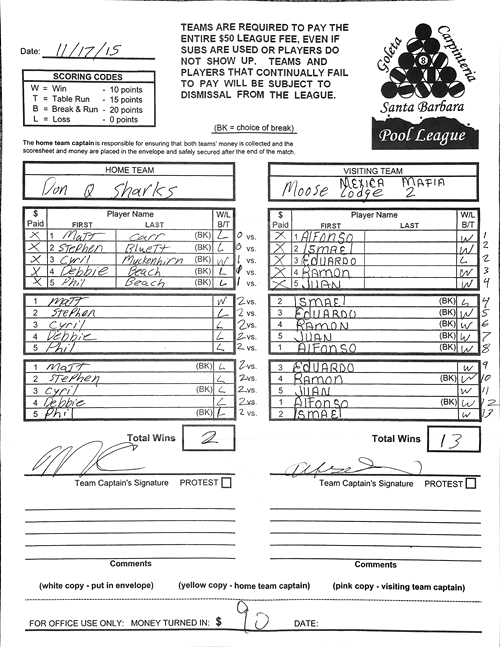 TEAMS ARE REQUIRED TO PAY THE
ENTIRE $50 LEAGUE FEE, EVEN IF
SUBS ARE USED OR PLAYERS DO
NOT SHOW UP. TEAMS AND
PLAYERS THAT CONTINUALLY FAIL
TO PAY WILL BE SUBJECT TO
DISMISSAL FROM THE LEAGUE.
(BK = choice of break)
Date: 11/17/15
SCORING CODES
W = Win - 10 points
T = Table Run - 15 points
B = Break & Run - 20 points
L = Loss - 0 points
Goleta Carpinteria
8
Santa Barbara
Pool League
The home team captain is responsible for ensuring that both teams' money is collected and the
scoresheet and money are placed in the envelope and safely secured after the end of the match.
HOME TEAM
Don Q Sharks
$ Paid Player Name W/L B/T
FIRST LAST
X 1 Matt Carr (BK) L 0 vs.
X 2 Stephen Bluett (BK) L 0 vs.
X 3 Cyril Muckenhirn (BK) W 1 vs.
X 4 Debbie Beach (BK) L 1 vs.
X 5 Phil Beach (BK) L 1 vs.
1 Matt W 2 vs.
2 Stephen L 2 vs.
3 Cyril L 2 vs.
4 Debbie L 2 vs.
5 Phil L 2 vs.
1 Matt (BK) L 2 vs.
2 Stephen L 2 vs.
3 Cyril (BK) L 2 vs.
4 Debbie L 2 vs.
5 Phil (BK) L 2 vs.
Total Wins 2
Team Captain's Signature PROTEST
Comments
VISITING TEAM
Moose Lodge MEXICA MAFIA 2
$ Paid Player Name W/L B/T
FIRST LAST
X 1 Alfonso W 1
X 2 ISMAEl W 2
X 3 EDUARDO L 2
X 4 RAMON W 3
X 5 JUAN W 4
2 ISMAEl (BK) L 4
3 EDUARDO (BK) W 5
4 RAMON (BK) W 6
5 JUAN (BK) W 7
1 AlFONSO (BK) W 8
3 EDUARDO W 9
4 RAMON (BK) W 10
5 JUAN W 11
1 AlFONSO (BK) W 12
2 ISMAEl W 13
Total Wins 13
Team Captain's Signature PROTEST
Comments
(white copy - put in envelope) (yellow copy - home team captain) (pink copy - visiting team captain)
FOR OFFICE USE ONLY: MONEY TURNED IN: $ 90 DATE: